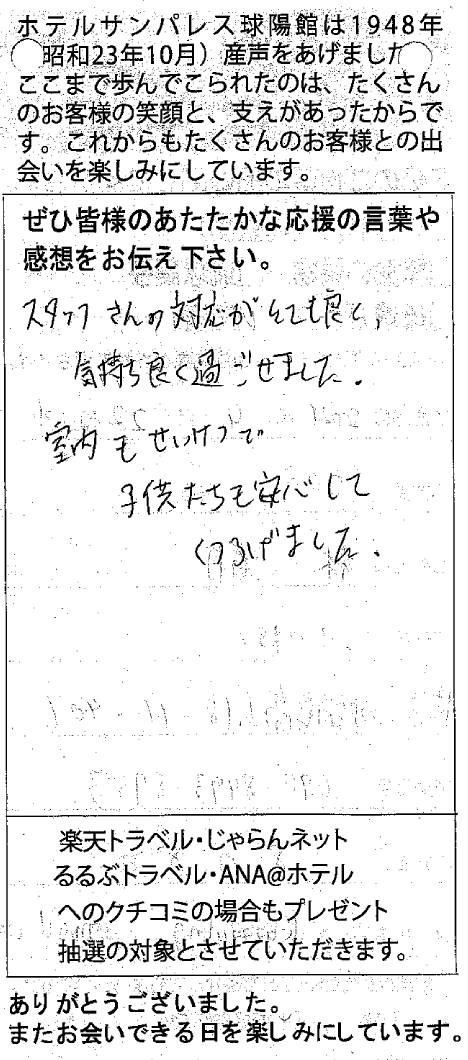 ホテルサンパレス球陽館は1948年
昭和23年10月）産声をあげました
ここまで歩んでこられたのは、たくさん
のお客様の笑顔と、支えがあったからで
す。これからもたくさんのお客様との出
会いを楽しみにしています。
ぜひ皆様のあたたかな応援の言葉や
感想をお伝え下さい。
スタッフさんの対応がとても良く、
気持ち良く過ごせました。
室内もせいけつで
子供たちも安心して
くつろげました。
楽天トラベル・じゃらんネット
るるぶトラベル・ANA@ホテル
へのクチコミの場合もプレゼント
抽選の対象とさせていただきます。
ありがとうございました。
またお会いできる日を楽しみにしています。